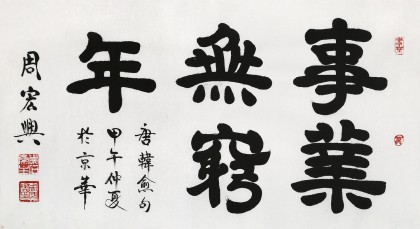 事業
無窮
年
唐韓愈句
甲午仲夏
於京華
周宏興